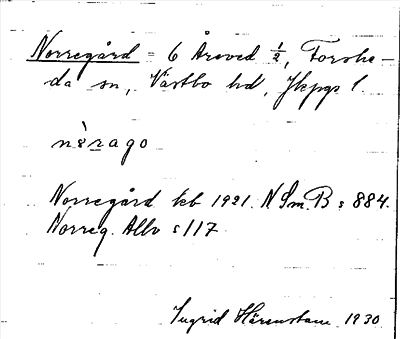 Norregård = 6 Åreved ½, Forshe-
da sn, Västbo hd, Jkpgs l.
nɛ̀rago
Norregård kb 1921. N Sm. B s 884.
Norreg. Allb s 117
Ingrid Härenstam 1930